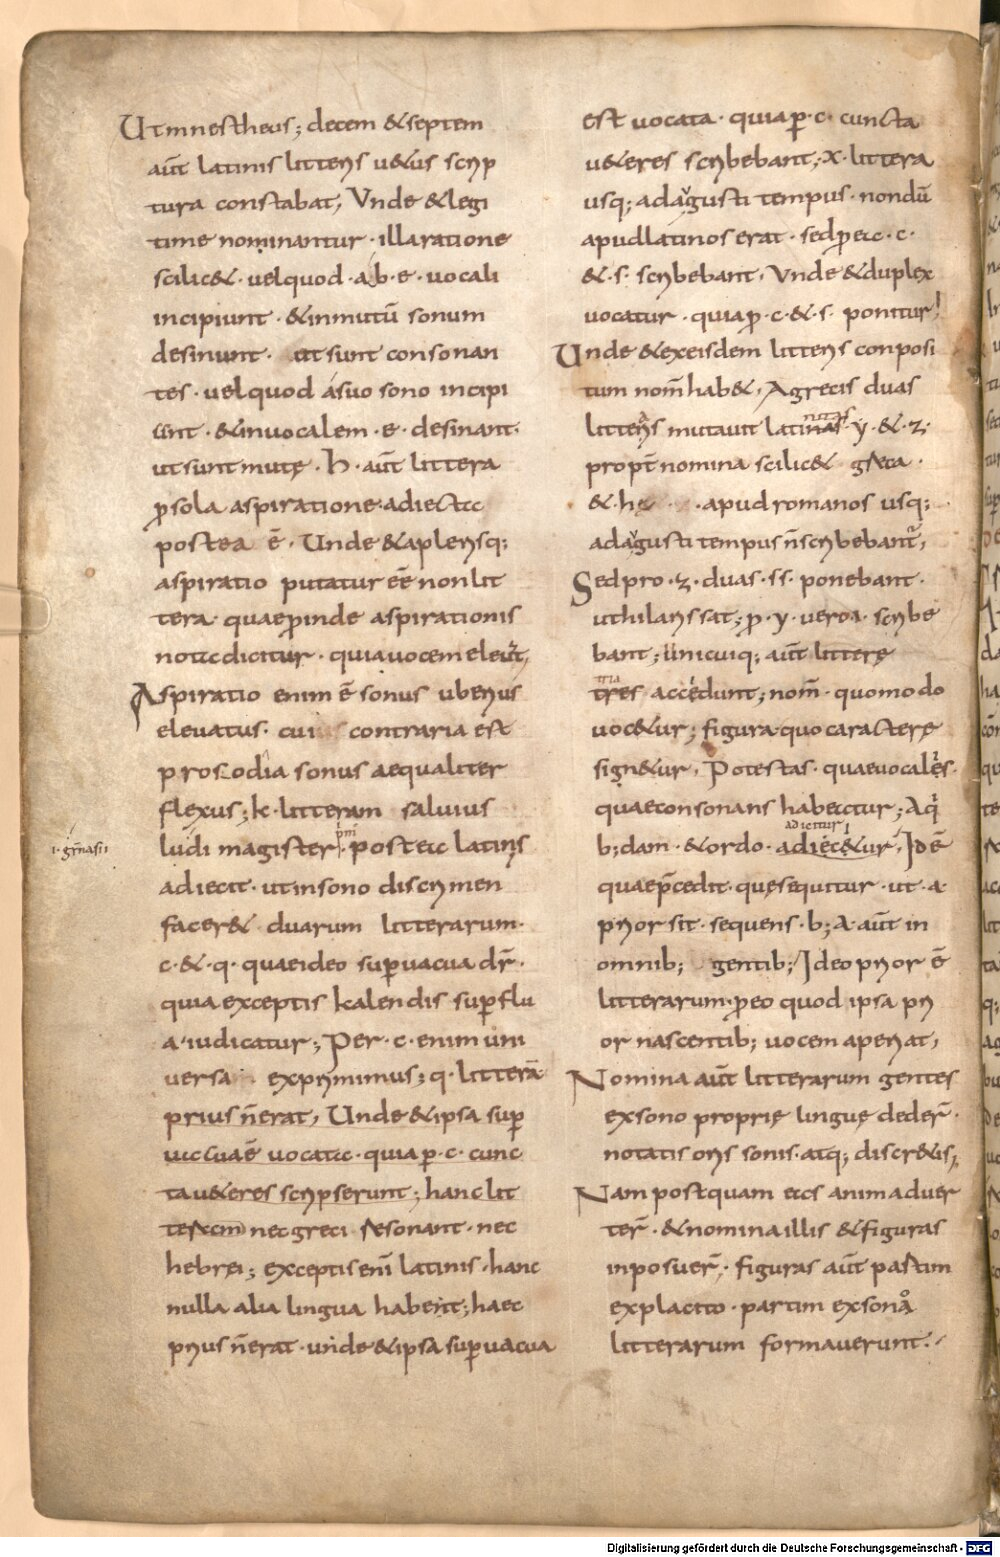 Ut mnestheus; decem &septem
aut̄ latinis litteris u&us scrip
tura constabat; Vnde &legi
time nominantur · illa ratione
scilic& · uelquod · a · b · e · uocali
incipiunt · &inmutū sonum
desinunt · ut sunt consonan
tes · uelquod asuo sono incipi
unt · &inuocalem · e · desinant ·
ut sunt mutę · h · aut̄ littera
ꝓsola aspiratione adiecta
postea ē · Unde &aplerisq;
aspiratio putatur eē̄ non lit
tera · quae ꝓinde aspirationis
nota dicitur · quia uocem eleuat̄;
Aspiratio enim ē sonus uberius
eleuatus · cui contraria est
prosodia sonus aequaliter
flexus; k · litteram saluius
i · gr̄nasii
ludi magister · postea latinis
adiecit · ut in sono discrimen
facer& duarum litterarum ·
c · & · q · quae ideo suꝑuacua dr̄ ·
quia exceptis kalendis suꝑflu
a iudicatur; Per · c · enim uni
uersa exprimimus; q · litterā
prius n̄erat; Unde &ipsa suꝑ
uacua ē uocata · quia ꝑ · c · cunc
ta u&eres scripserunt; hanc lit
teram nec greci resonant · nec
hebrei; exceptis eni̅ latinis · hanc
nulla alia lingua habent; haec
prius n̄erat · unde &ipsa suꝑuacua
est uocata · quia ꝑ · c · cuncta
u&eres scribebant; X · littera
usq; adagusti tempus · nondū
apud latinos erat · sed ꝓea · c ·
& · s · scribebant · Vnde &duplex
uocatur · quia ꝓ · c · & · s · ponitur
Unde &exeisdem litteris conposi
tum nom̄ hab&; Agrecis duas
litteras mutauit latinitas · y · & · z ·
propt̄ nomina scilic& greca ·
& · hę · apud romanos usq;
adagusti tempus n̄scribebant̄;
Sed pro · z · duas · ss · ponebant ·
ut hilarissat; ꝓ · y · uero · i · scribe
bant; Unicuiq; aut̄ litterę
tria
tres accedunt; nom̄ · quomodo
uoc&ur; figura quo caractere
sign&ur; Potestas · quae uocales ·
quae consonans habeatur; A q̄
adicitur
b; dam · &ordo · adiec&ur; Id ē
quae p̄cedit · quę sequitur · ut · a ·
prior sit · sequens · b; A · aut̄ in
omnib; gentib; Ideo prior ē
litterarum · ꝓeo quod ipsa pri
or nascentib; uocem aperiat;
Nomina aut̄ litterarum gentes
exsono proprię linguę deder̄ ·
notatis oris sonis · atq; discr&is;
Nam postquam eas animaduer
ter̄ · &nomina illis &figuras
inposuer̄ · figuras aut̄ partim
explacito · partim exsono
litterarum formauerunt ·
Digitalisierung gefördert durch die Deutsche Forschungsgemeinschaft - DFG